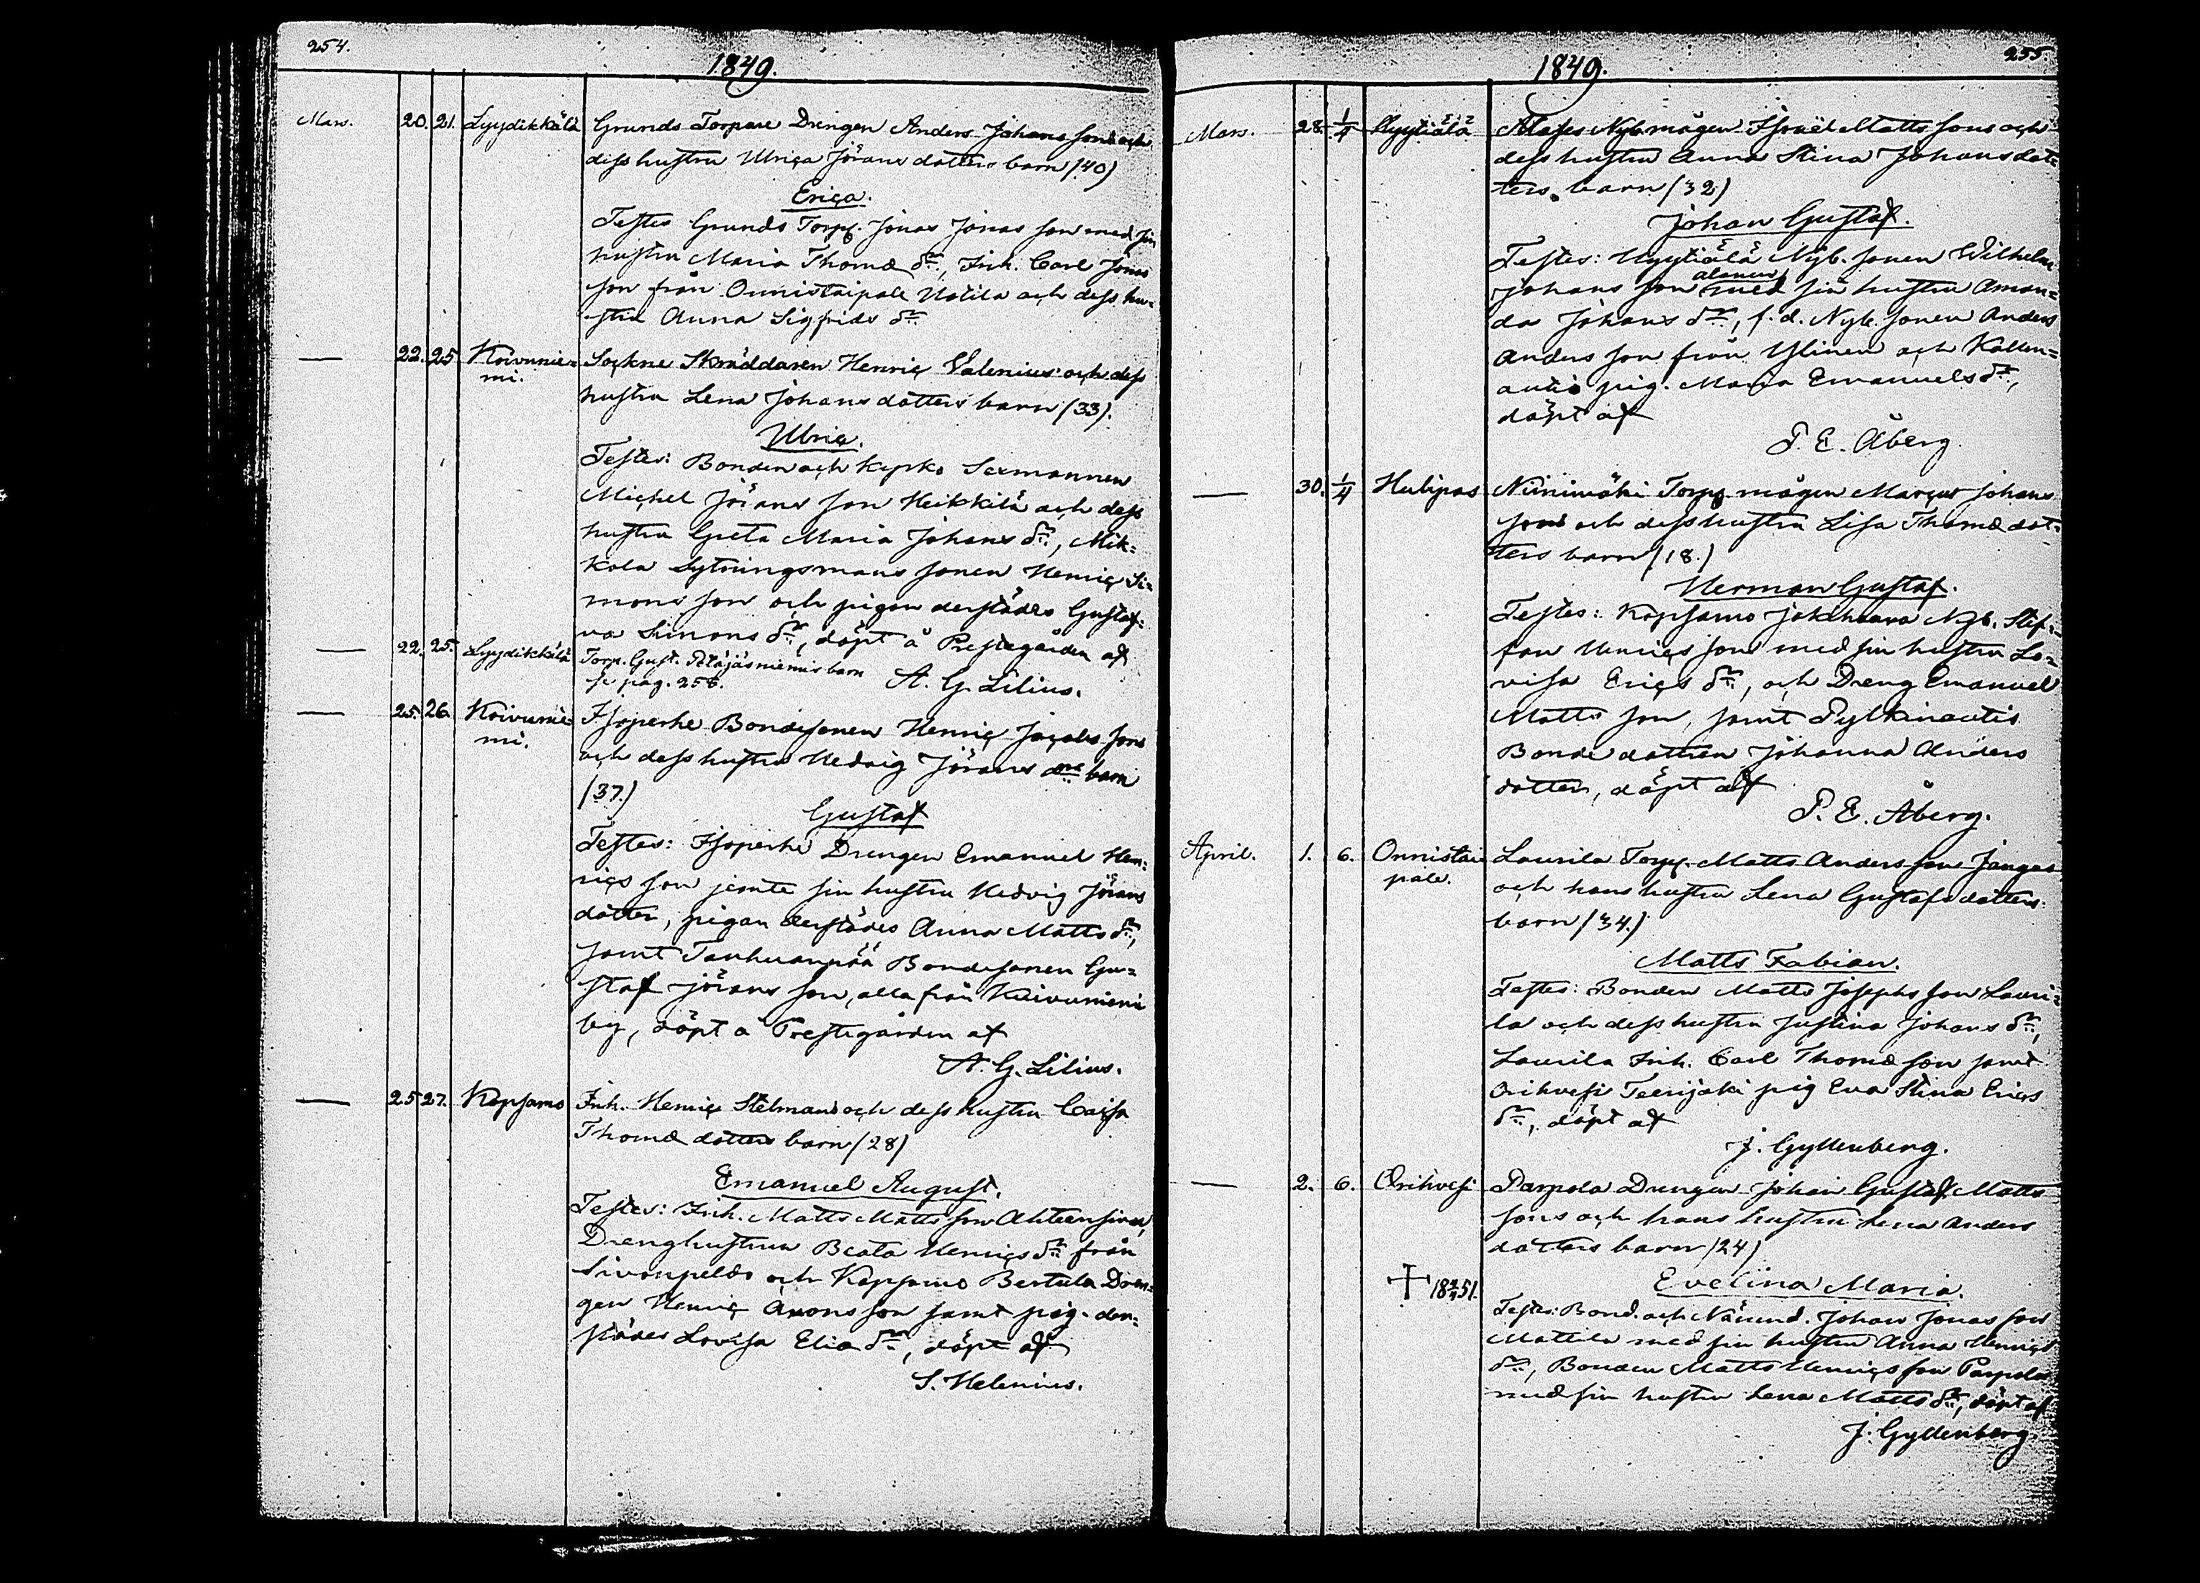 254.
1849.
Mars. 20. 21. Lyydikkälä Grunds Torpare Drengen Anders Johans sons och
dess hustru Ulrica Jörans dotters barn (40)
Erica.
Testes Grunds Torp. Jonas Jonas son med sin
hustru Maria Thomæ dr, Inh. Carl Jonas
son från Onnistaipale Uotila och dess hu-
stru Anna Sigfrids dr
— 22. 25 Koivunie- Sockne Skräddaren Henric Valenius och dess
mi. hustru Lena Johans dotters barn (33).
Ulric.
Testes: Bonden och Kyrko Sexmannen
Michel Jörans son Heikkilä och dess
hustru Greta Maria Johans dr, Mik-
kola Sytningsmans sonen Henric Si-
mons son och pigan derstädes Gustaf-
va Simons dr, döpt å Prestegården af
A. G. Lilius.
— 22. 25. Lyydikkälä Torp. Gust. Petäjäsniemis barn
se pag. 256.
— 25. 26. Koivunie- Isoperhe Bondesonen Henric Jacobs sons
mi. och dess hustru Hedvig Jörans drs barn
(37.)
Gustaf
Testes: Isoperhe Drengen Emanuel Hen-
rics son jemte sin hustru Hedvig Jörans
dotter, pigan derstädes Anna Matts dr,
samt Tanhuanpää Bondesonen Gu-
staf Jörans son, alla från Koivuniemi
by, döpt å Prestegården af
A. G. Lilius.
— 25 27. Kepsamo Inh. Henric Stelmans och dess hustru Caisa
Thomæ dotters barn (28)
Emanuel August.
Testes: Inh. Matts Matts son Ahteensivu,
Drenghustrun Beata Henrics dr från
Sivonpeldo och Kepsamo Bertula Dren-
gen Henric Arons son samt pig. der-
städes Lovisa Eliæ dr, döpt af
S. Helenius.
255.
1849.
Mars. 28. 1/4 Uyytiälä Nyb. mågen Israël Matts sons och
dess hustru Anna Stina Johans dot-
ters barn (32)
Johan Gustaf.
Testes: Nyb. sonen Wilhelm
Johans son med sin hustru Aman-
da Johans dr, f. d. Nyb. sonen Anders
Anders son från Ylinen och Katten-
autio pig. Maria Emanuels dr,
döpt af
P. E. Åberg.
— 30. 1/4 Hulipas Niinimäki Torp mågen Marcus Johans
sons och dess hustru Lisa Thomæ dot-
ters barn (18.)
Herman Gustaf.
Testes: Kepsamo Nyb. Stef-
fan Henrics son med sin hustru Lo-
visa Erics dr, och Dreng Emanuel
Matts son, samt Pylkinautis
Bonde dottren Johanna Anders
dotter, döpt af
P. E. Åberg.
April. 1. 6. Onnistai Laurila Torp. Matts Anders sons Jangas
pale. och hans hustru Lena Gustafs dotters
barn (34.)
Matts Fabian.
Testes: Bonden Matts Josephs son Lauri-
la och dess hustru Justina Johans dr,
Laurila Inh. Carl Thomæ son samt
Orihvesi Teerijoki pig Eva Stina Erics
dr, döpt af
J. Gyllenberg.
— 2. 6. Orihvesi Parpola Drengen Johan Gustaf Matts
sons och hans hustru Lena Anders
dotters barn (24)
Evelina Maria.
Testes: Bond. och Nämnd. Johan Jonas son
Mattila med sin hustru Anna Henrics
dr, Bonden Matts Henrics son Parpola
med sin hustru Lena Matts dr, döpt af
J. Gyllenberg.